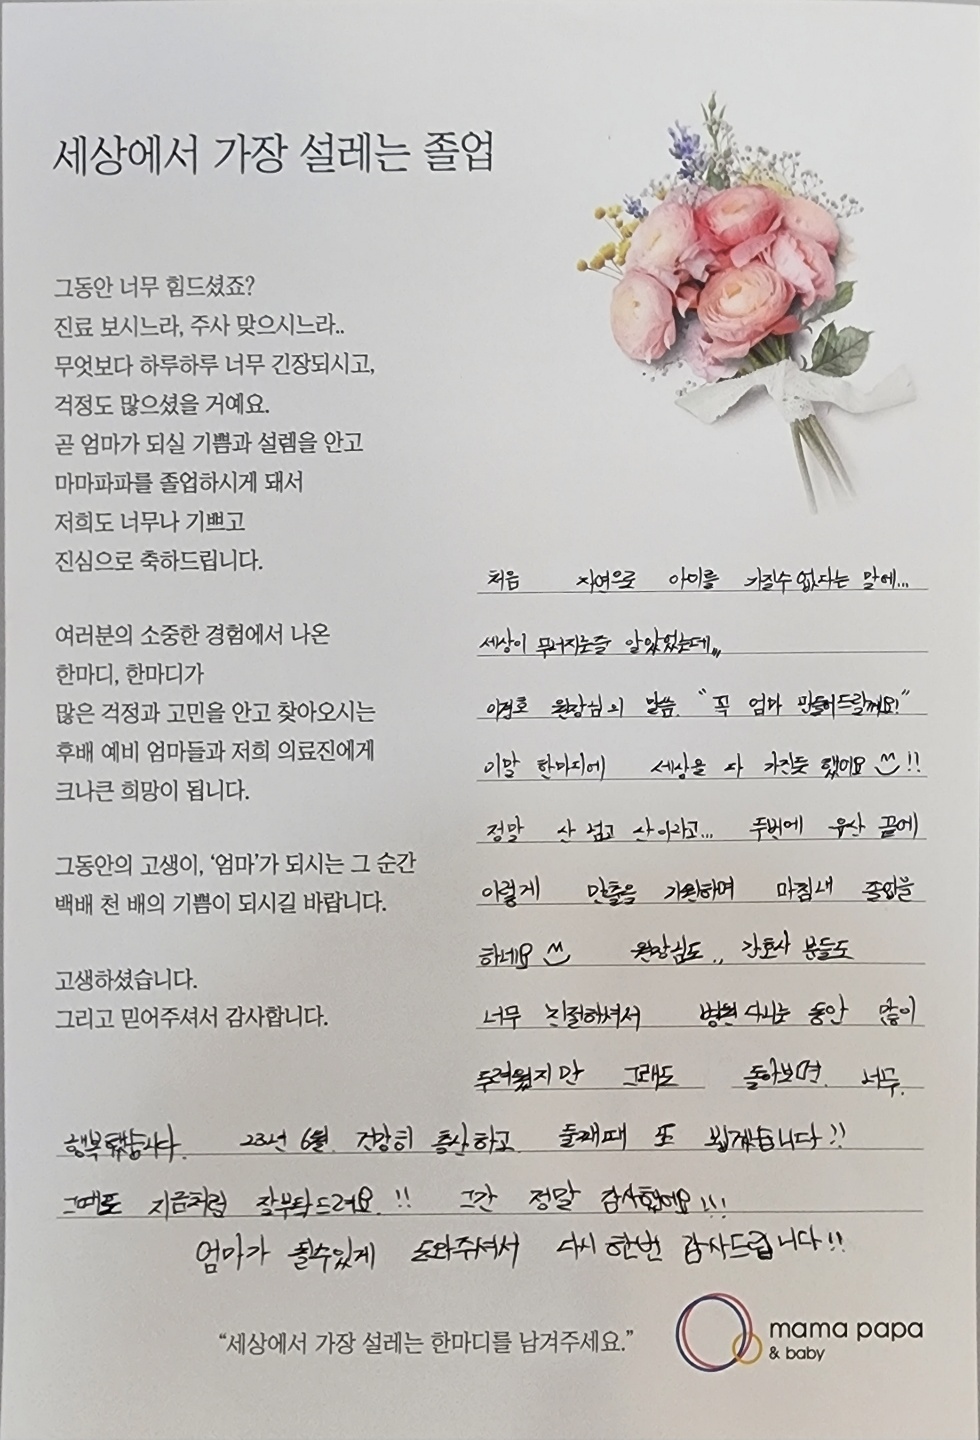 세상에서 가장 설레는 졸업
그동안 너무 힘드셨죠?
진료 보시느라, 주사 맞으시느라..
무엇보다 하루하루 너무 긴장되시고,
걱정도 많으셨을 거예요.
곧 엄마가 되실 기쁨과 설렘을 안고
마마파파를 졸업하시게 돼서
저희도 너무나 기쁘고
진심으로 축하드립니다.
여러분의 소중한 경험에서 나온
한마디, 한마디가
많은 걱정과 고민을 안고 찾아오시는
후배 예비 엄마들과 저희 의료진에게
크나큰 희망이 됩니다.
그동안의 고생이, '엄마'가 되시는 그 순간
백배 천 배의 기쁨이 되시길 바랍니다.
고생하셨습니다.
그리고 믿어주셔서 감사합니다.
처음 자연으로 아이를 가질수 없다는 말에...
세상이 무너지는줄 알았었는데,,,
이경호 원장님의 말씀. "꼭 엄마 만들어드릴께요!"
이말 한마디에 세상을 다 가진듯 했어요 !!
정말 산 넘고 산이라고... 두번에 유산 끝에
이렇게 만출을 기원하며 마침내 졸업을
하네요 원장님도.. 간호사 분들도
너무 친절하셔서 병원 다니는 동안 많이
두려웠지만 그래도 돌아보면. 너무.
행복했습니다. 23년 6월. 건강히 출산하고. 둘째때 또 뵙겠습니다!!
그때도 지금처럼 잘부탁드려요.!! 그간 정말 감사했어요!!!
엄마가 될수있게 도와주셔서 다시 한번 감사드립니다!!
"세상에서 가장 설레는 한마디를 남겨주세요."
mama papa
& baby